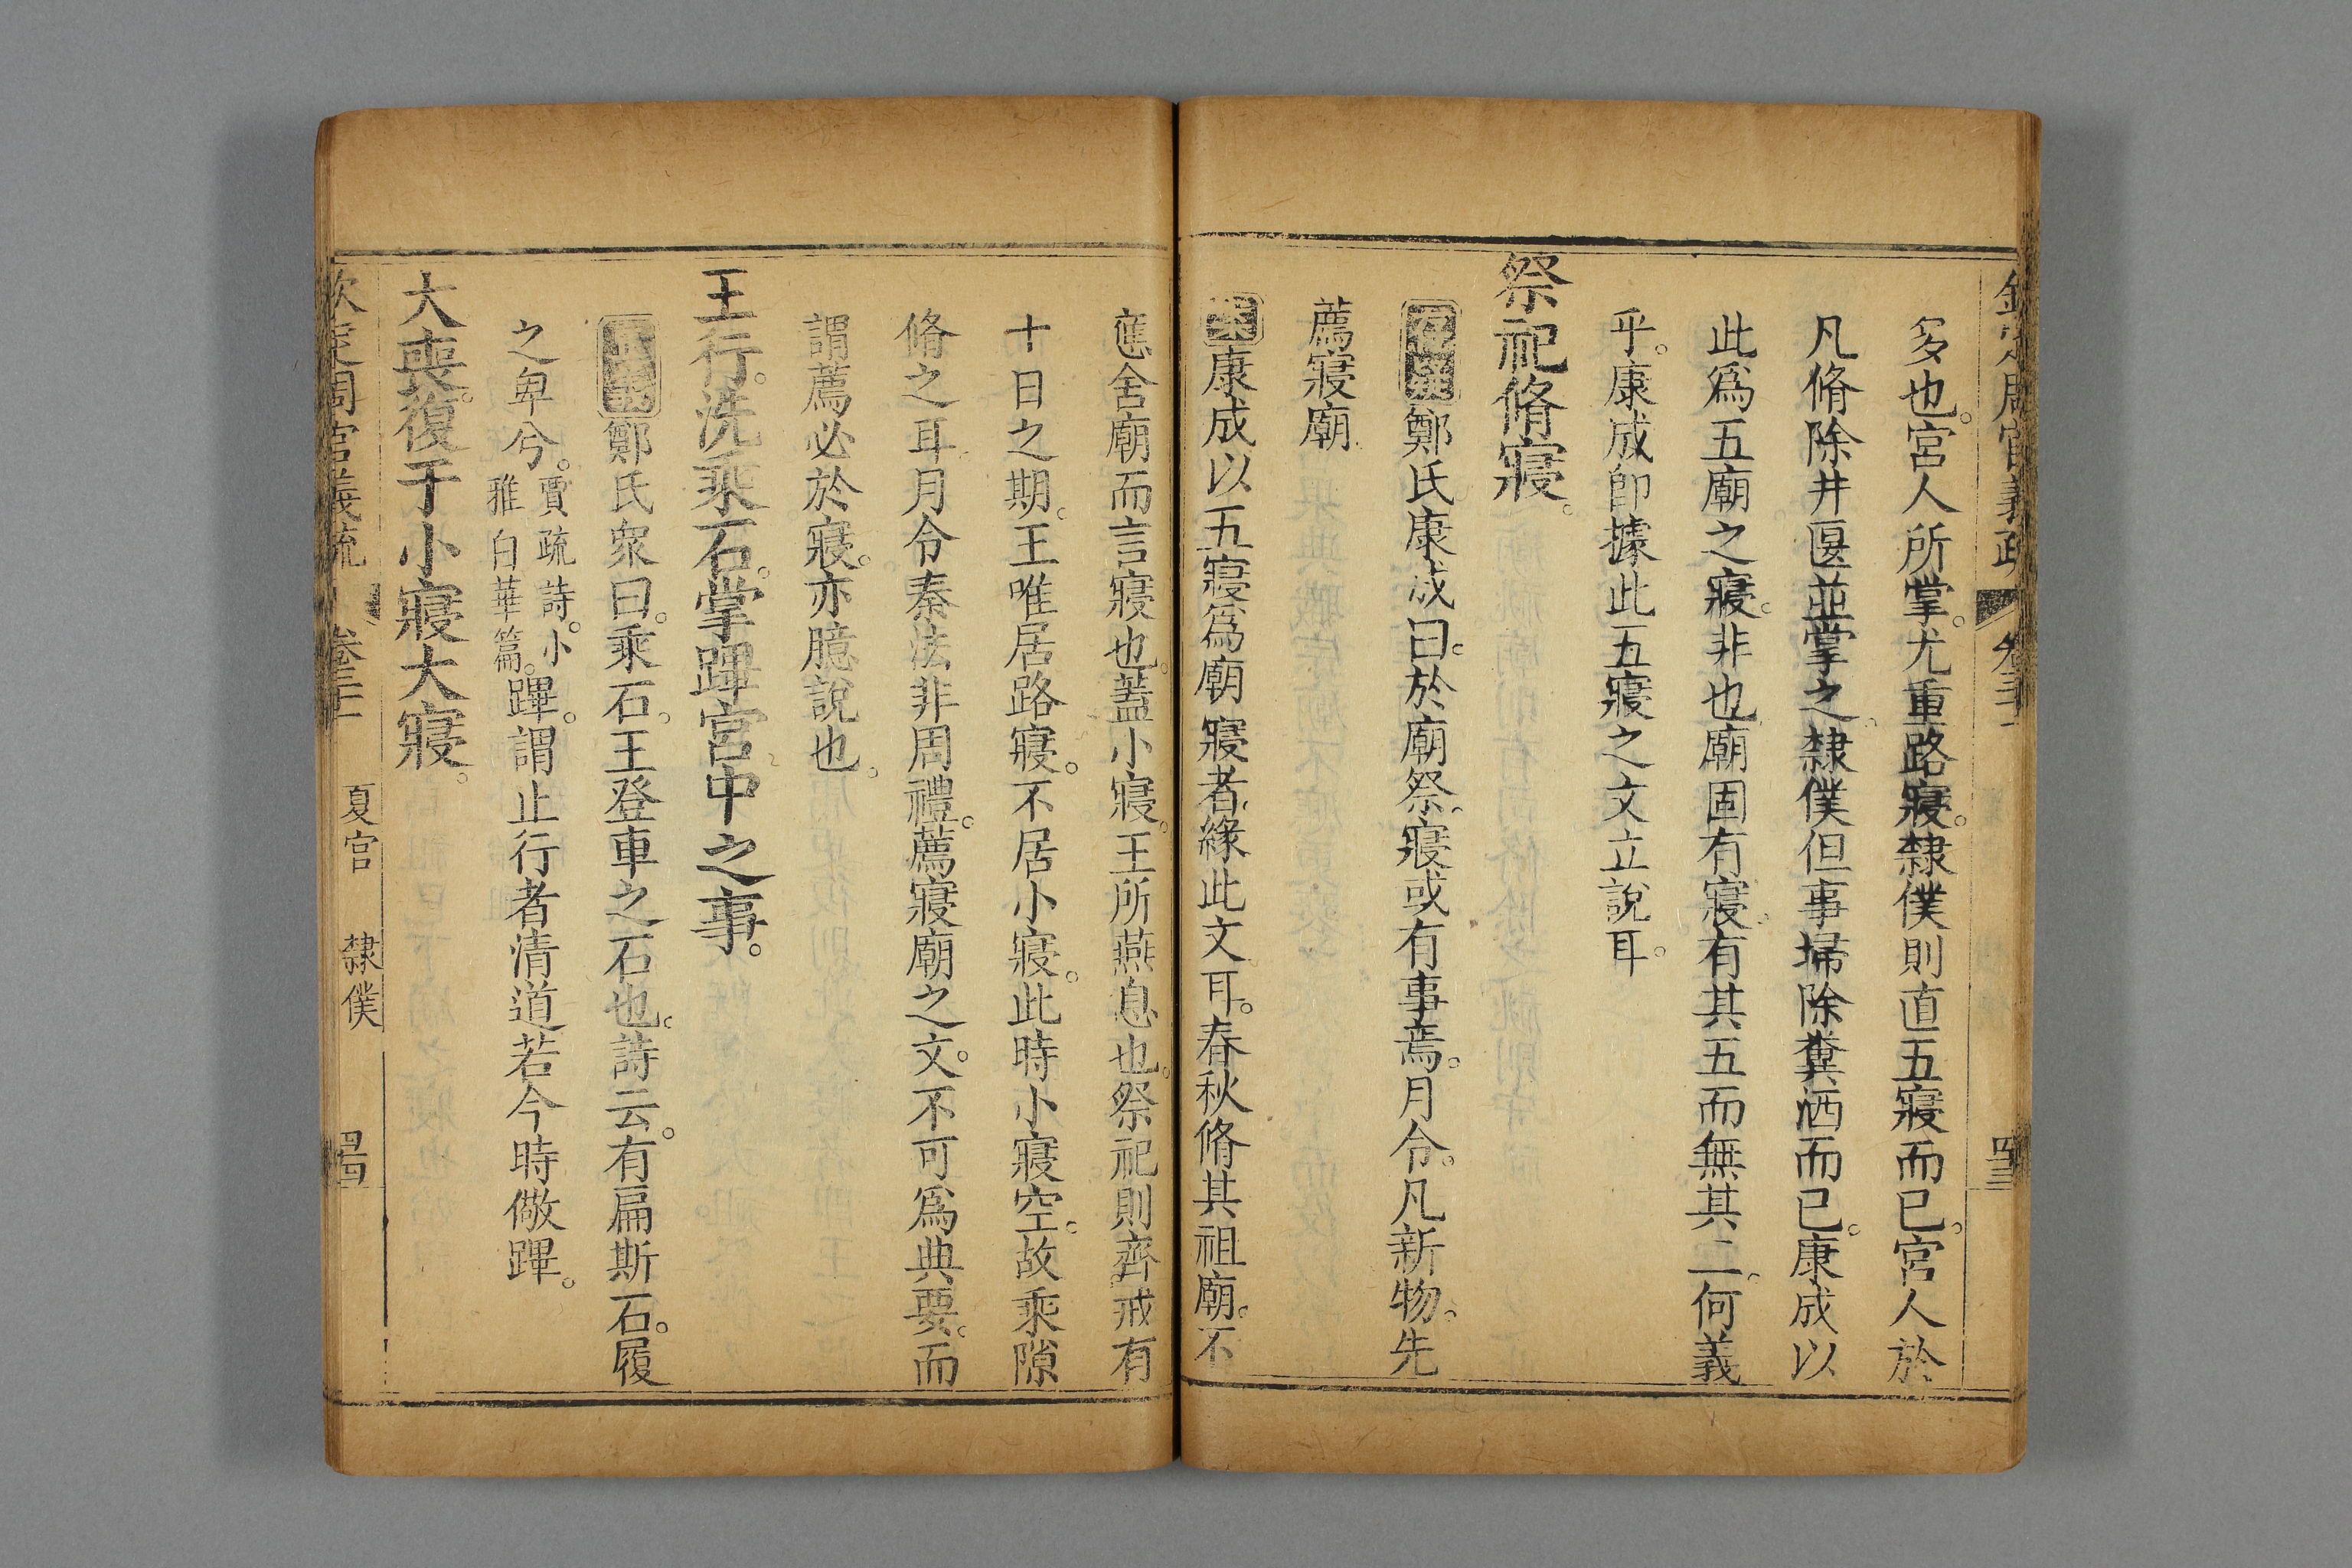 欽定周官義疏 卷三十一 四三
多也。宮人所掌。尤重路寢。隸僕則直五寢而已。宮人於
凡脩除井匽並掌之。隸僕但事埽除糞洒而已。康成以
此爲五廟之寢。非也。廟固有寢。有其五而無其二。何義
乎。康成卽據此五寢之文立說耳。
祭祀脩寢。
鄭氏康成曰。於廟祭。寢或有事焉。月令。凡新物。先
薦寢廟
案康成以五寢爲廟寢者。緣此文耳。春秋脩其祖廟。不
應舍廟而言寢也。蓋小寢。王所燕息也。祭祀則齊戒有
十日之期。王唯居路寢。不居小寢。此時小寢空。故乘隙
脩之耳。月令秦法非周禮。薦寢廟之文。不可爲典要。而
謂薦必於寢。亦臆說也。
王行。洗乘石。掌蹕宮中之事。
鄭氏衆曰。乘石。王登車之石也。詩云。有扁斯石。履
之卑兮。賈疏詩。小雅白華篇。蹕。謂止行者清道若今時儆蹕。
大喪。復于小寢大寢。
欽定周官義疏 卷三十一 夏官 隸僕 四四